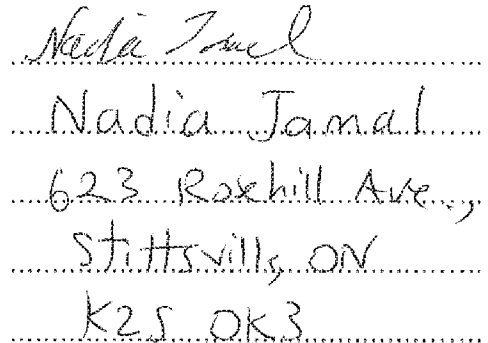 Nadia Jamal
Nadia Jamal
623 Roxhill Ave.,
Stittsville, ON
K2S 0K3